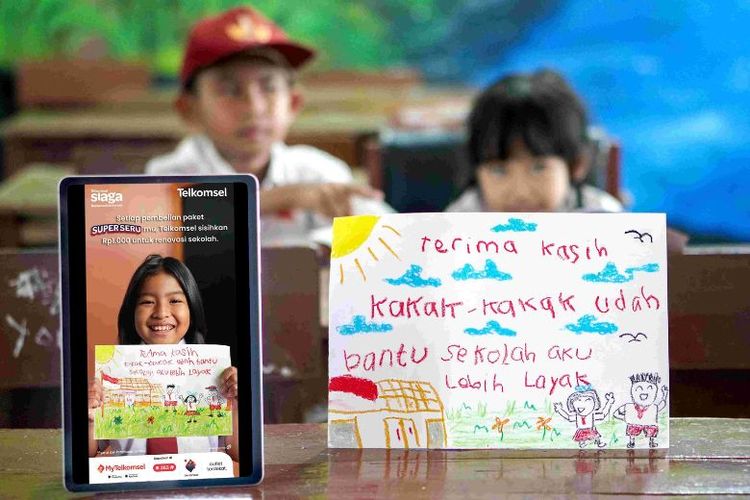 siaga
Telkomsel
Setiap pembelian paket
SUPER SERU mu, Telkomsel sisihkan
Rp1.000 untuk renovasi sekolah.
terima kasih
kakak-kakak udah bantu
sekolah aku lebih layak
MyTelkomsel
terima kasih
kakak-kakak udah
bantu sekolah aku
lebih layak